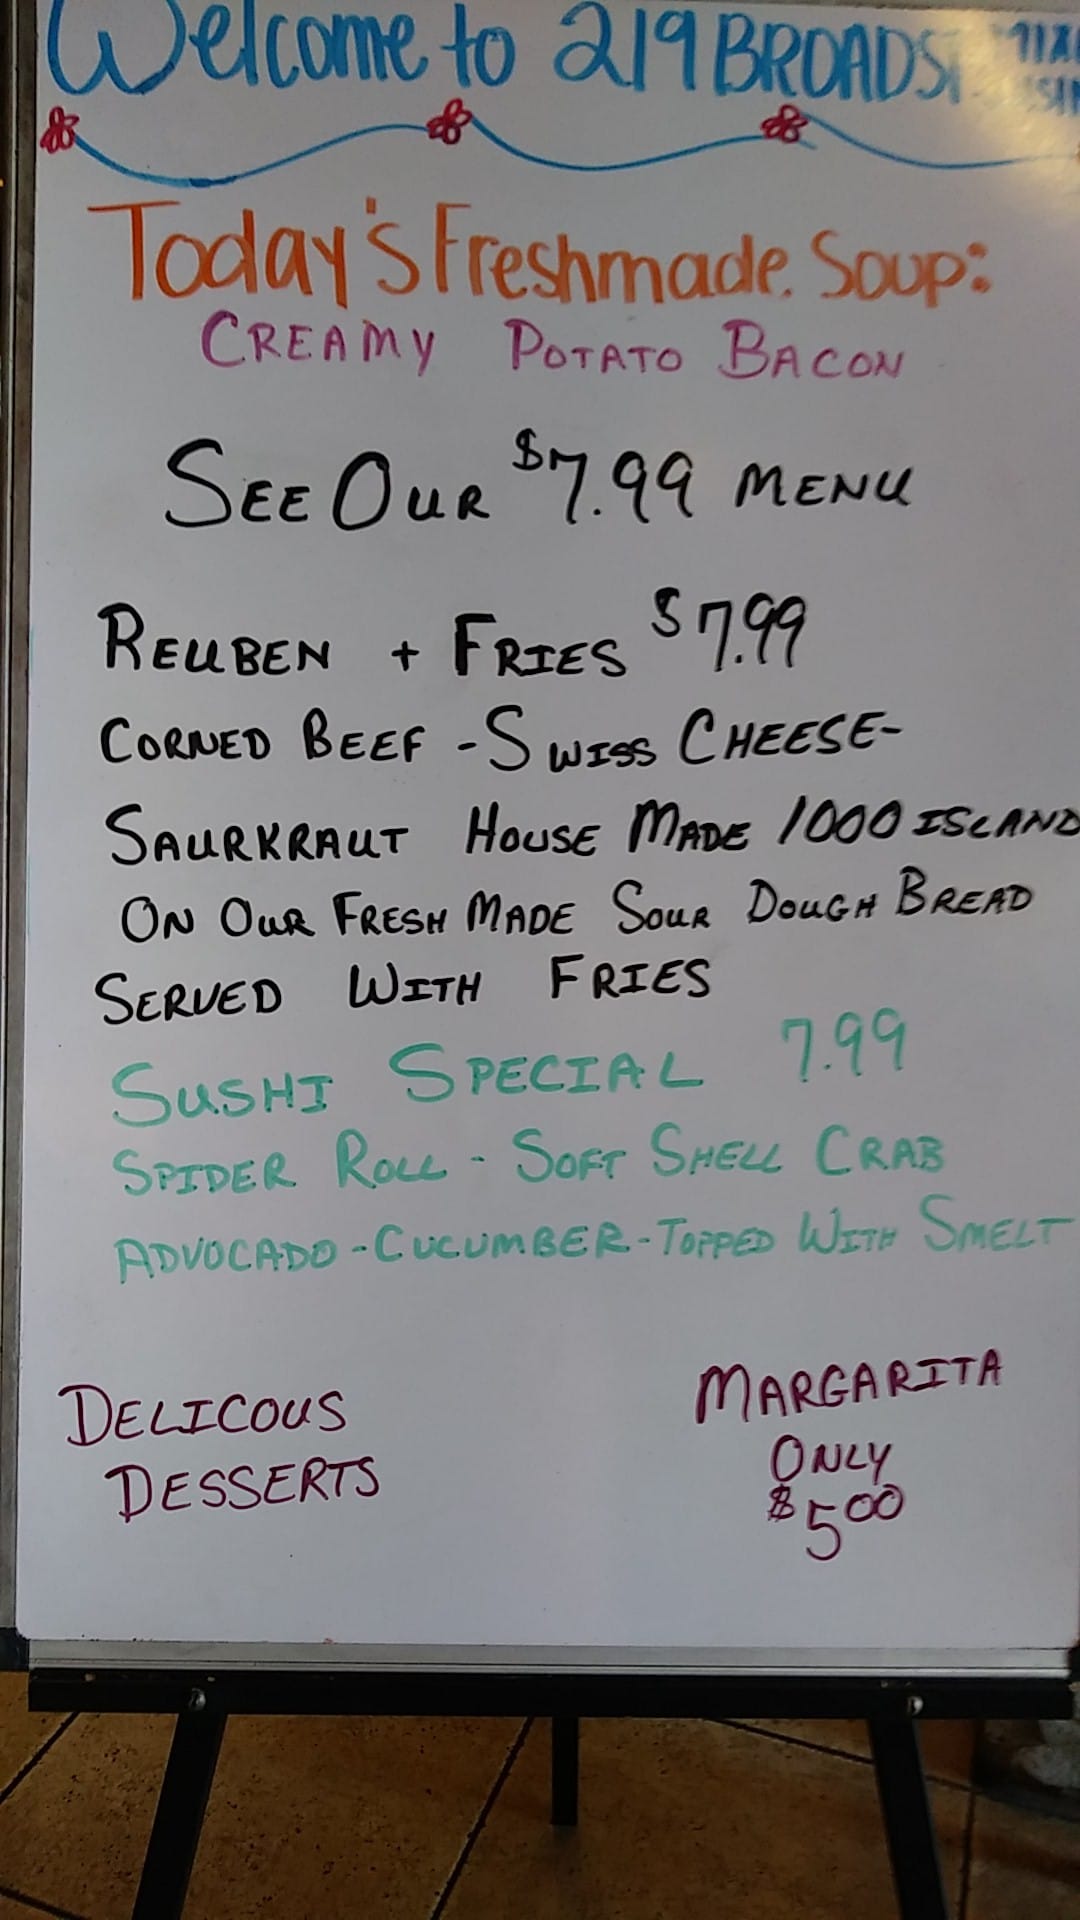 Welcome to 219 BROADST
Today's Freshmade Soup:
CREAMY POTATO BACON
SEE OUR $7.99 MENU
REUBEN + FRIES $7.99
CORNED BEEF - SWISS CHEESE-
SAURKRAUT HOUSE MADE 1000 ISLAND
ON OUR FRESH MADE SOUR DOUGH BREAD
SERVED WITH FRIES
SUSHI SPECIAL 7.99
SPIDER ROLL - SOFT SHELL CRAB
ADVOCADO - CUCUMBER - TOPPED WITH SMELT
DELICOUS
DESSERTS
MARGARITA
ONLY
$5.00